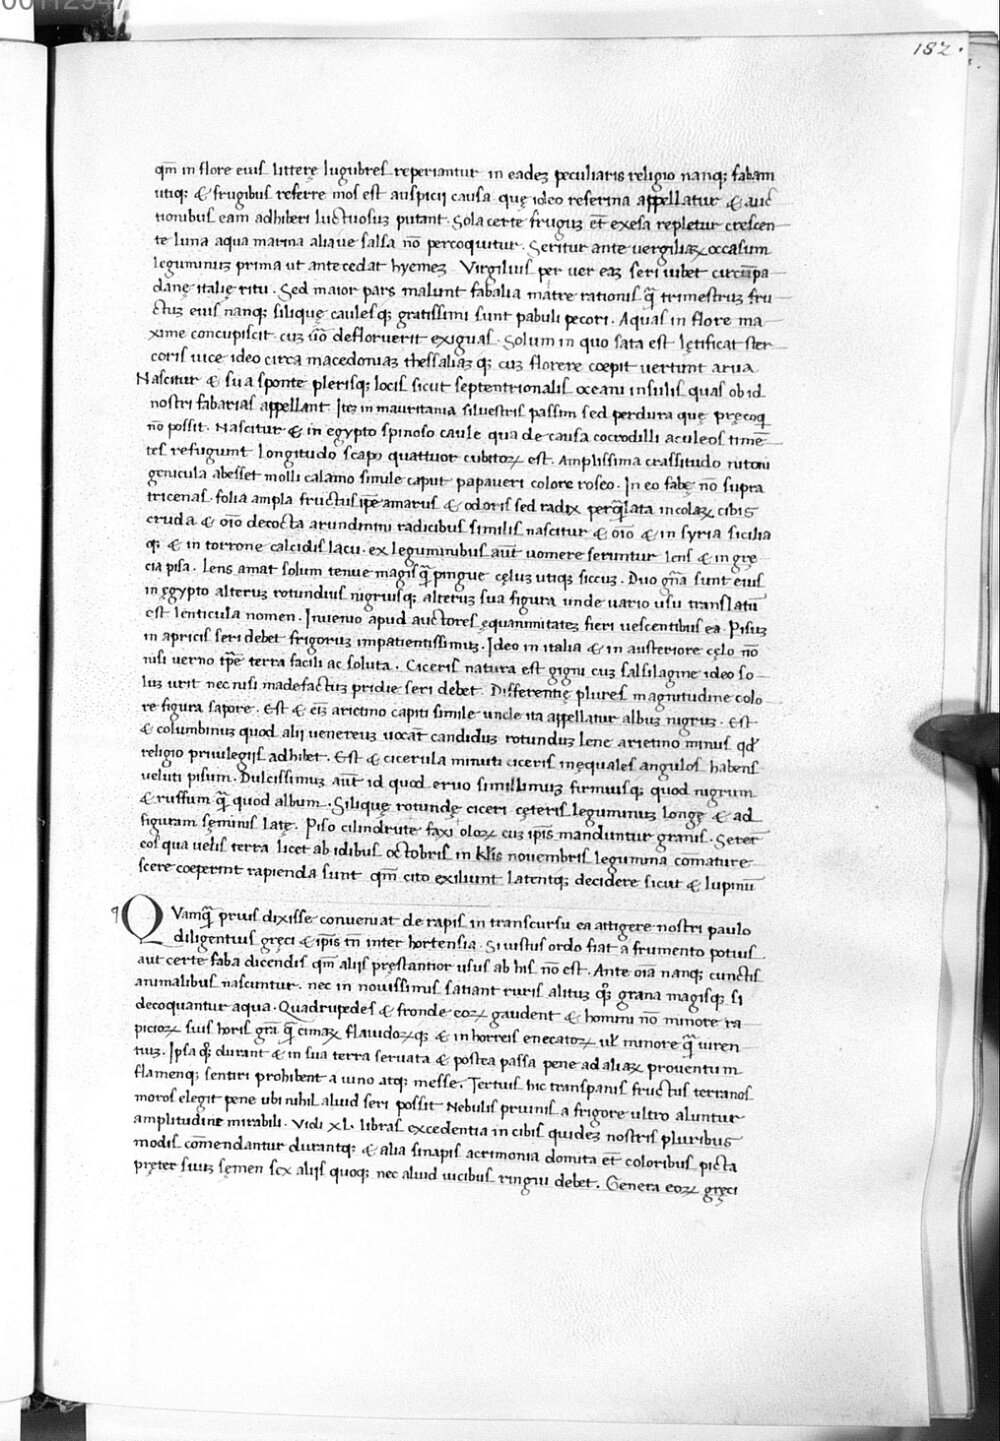 182.
qm̄ in flore eius litterę lugubres reperiantur in eadeꝫ peculiaris religio nanqꝫ fabam
utiqꝫ & frugibus referre mos est auspicij causa quę ideo referina appellatur & auc
tionibus eam adhiberi luctuosuꝫ putant. Sola certe fruguꝫ et̄ exesa repletur crescen
te luna aqua marina aliaue salsa nō percoquitur. Seritur ante uergiliaꝝ occasum
leguminuꝫ prima ut antecedat hyemeꝫ Virgilius per uer eaꝫ seri iubet circūpa
danę italię ritu. Sed maior pars malunt fabalia matre rationis q̄ trimestruꝫ fru
ctuꝫ eius nanqꝫ siliquę caulesqꝫ gratissimi sunt pabuli pecori. Aquas in flore ma
xime concupiscit cuꝫ uō defloruerit exiguas. Solum in quo sata est lętificat ster
coris uice ideo circa macedoniaꝫ thessaliaꝫ qꝫ cuꝫ florere coepit uertunt arua
Nascitur & sua sponte plerisqꝫ locis sicut septentrionalis oceani insulis quas ob id
nostri fabarias appellant. Iteꝫ in mauritania siluestris passim sed perdura quę pręcoq
nō possit. Nascitur & in egypto spinoso caule qua de causa cocrodilli aculeos timē
tes refugiunt longitudo scapo quattuor cubitoꝝ est. Amplissima crassitudo ni toni
genicula abesset molli calamo simile caput papaueri colore roseo. In eo fabę nō supra
tricenas. folia ampla fructus ip̄e amarus & odoris sed radix perq̄ lata incolaꝝ cibis
cruda & oīo decocta arundinini radicibus similis nascitur & oīo & in syria sicilia
qꝫ & in torrone calcidis lacu. ex leguminibus aūt uomere seruntur lens & in grę
cia pisa. Lens amat solum tenue magis q̄ pingue cęluꝫ utiqꝫ siccuꝫ. Duo gn̄a sunt eius
in ęgypto alteruꝫ rotundius nigriusqꝫ alteruꝫ sua figura unde uario usu translatū
est lenticula nomen. Inuenio apud auctores ęquanimitateꝫ fieri uescentibus ea. Pisuꝫ
in apricis seri debet frigoruꝫ impatientissimuꝫ. Ideo in italia & in austeriore cęlo nō
nisi uerno tp̄e terra facili ac soluta. Ciceris natura est gigni cuꝫ salsilagine ideo so
luꝫ urit nec nisi madefactuꝫ pridie seri debet. Differentię plures magnitudine colo
re figura sapore. Est & eīꝫ arietino capiti simile unde ita appellatur albuꝫ nigruꝫ. Est
& columbinuꝫ quod alij uenereuꝫ uocāt candiduꝫ rotunduꝫ lene arietino minus qd
religio priuilegijs adhibet. Est & cicerula minuti ciceris inęquales angulos habens
ueluti pisum. Dulcissimuꝫ aūt id quod eruo simillimuꝫ firmiusqꝫ quod nigrum
& ruffum q̄ quod album. Siliquę rotundę ciceri cęteris leguminuꝫ longę & ad
figuram sęminis latę. Piso cilindrute faxi oloꝝ cuꝫ ip̄is manduntur granis. Seren̄
eos qua uelis terra licet ab idibus octobris in kl̄is nouembris legumina cōmature
scere coeperint rapienda sunt qm̄ cito exiliunt latentqꝫ decidere sicut & lupinū
q
QVamq̄ prius dixisse conueniat de rapis in transcursu ea attigere nostri paulo
diligentius gręci & ip̄is tn̄ inter hortensia. Si iustus ordo fiat a frumento potius
aut certe faba dicendis qm̄ alijs pręstantior usus ab his nō est. Ante oīa nanqꝫ cunctis
animalibus nascuntur. nec in nouissimis satiant ruris alituꝫ qꝫ grana magisqꝫ si
decoquantur aqua. Quadrupedes & fronde eoꝝ gaudent & homini nō minore ra
picioꝝ suis horis grā q̄ cimaꝝ flauidoꝝqꝫ & in horreis enecatoꝝ ul̄ minore q̄ uiren
tiuꝫ. Ipsa qꝫ durant & in sua terra seruata & postea passa pene ad aliaꝝ prouentum
flamenqꝫ sentiri prohibent a uino atqꝫ messe. Tertuis hic transpanis fructus terranos
moros elegit pene ubi nihil aliud seri possit Nebulis pruinis a frigore ultro aluntur
amplitudine mirabili. Vidi XL. libras excedentia in cibis quideꝫ nostris pluribus
modis cōmendantur durantqꝫ & alia sinapis acrimonia domita et̄ coloribus picta
pręter suuꝫ sęmen sex alijs quoqꝫ nec aliud uicibus ringiu debet. Genera eoꝝ gręci